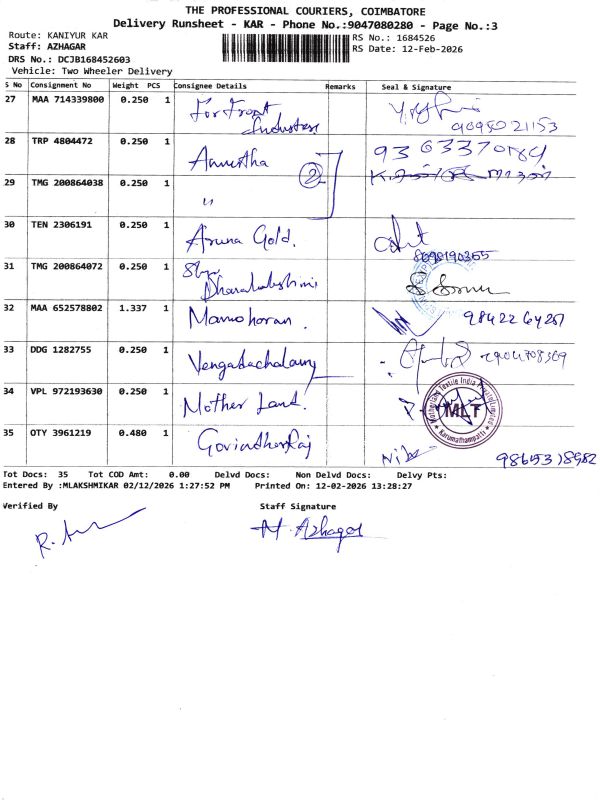 THE PROFESSIONAL COURIERS, COIMBATORE
Delivery Runsheet - KAR - Phone No.:9047080280 - Page No.:3
Route: KANIYUR KAR
RS No.: 1684526
Staff: AZHAGAR
RS Date: 12-Feb-2026
DRS No.: DCJB168452603
Vehicle: Two Wheeler Delivery
S No Consignment No Weight PCS Consignee Details Remarks Seal & Signature
27 MAA 714339800 0.250 1 For Front
Industries 9095021153
28 TRP 4804472 0.250 1 Amirtha 2 9363370184
29 TMG 200864038 0.250 1 "
30 TEN 2306191 0.250 1 Aruna Gold.
8098190355
31 TMG 200864072 0.250 1 Shri
Dhanalakshmi
32 MAA 652578802 1.337 1 Manohoran. 9842264251
33 DDG 1282755 0.250 1 Vengadachalam
34 VPL 972193630 0.250 1 Mother Land.
Motherland Textile India Private Limited
MLT
Karumathampatti
35 OTY 3961219 0.480 1 GovindhanRaj
9865318982
Tot Docs: 35 Tot COD Amt: 0.00 Delvd Docs: Non Delvd Docs: Delvy Pts:
Entered By :MLAKSHMIKAR 02/12/2026 1:27:52 PM Printed On: 12-02-2026 13:28:27
Verified By Staff Signature
M. Azhagar